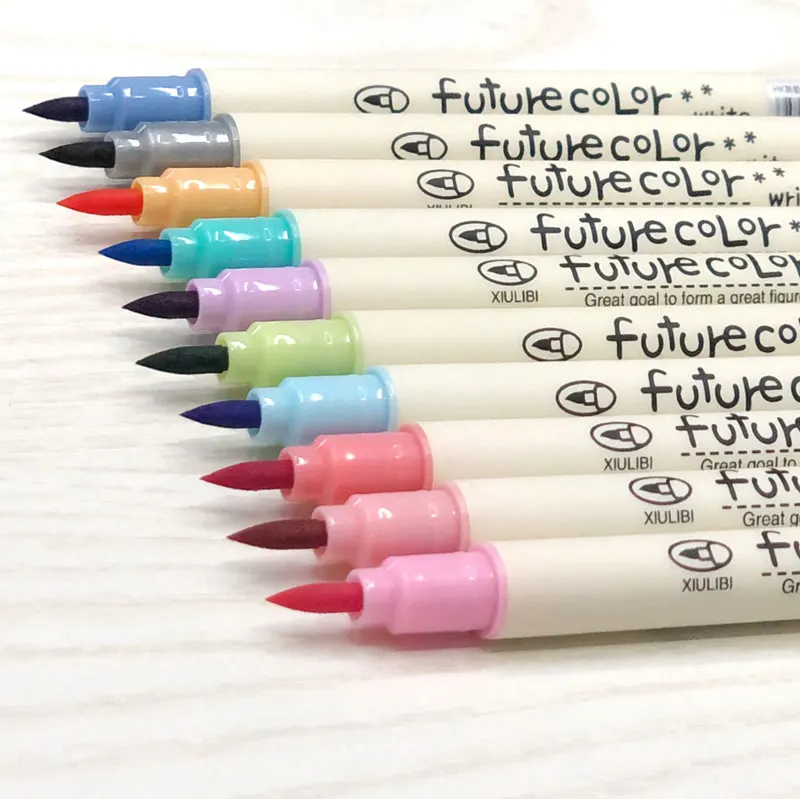 futurecoLor**
write
futurecoLor**
futurecoLor**
wri
futurecoLor*
futurecoLor
XIULIBI
Great goal to form a great figur
futureco
futurec
futur
XIULIBI
Great goal to
futu
XIULIBI
Great g
fu
XIULIBI
Gr